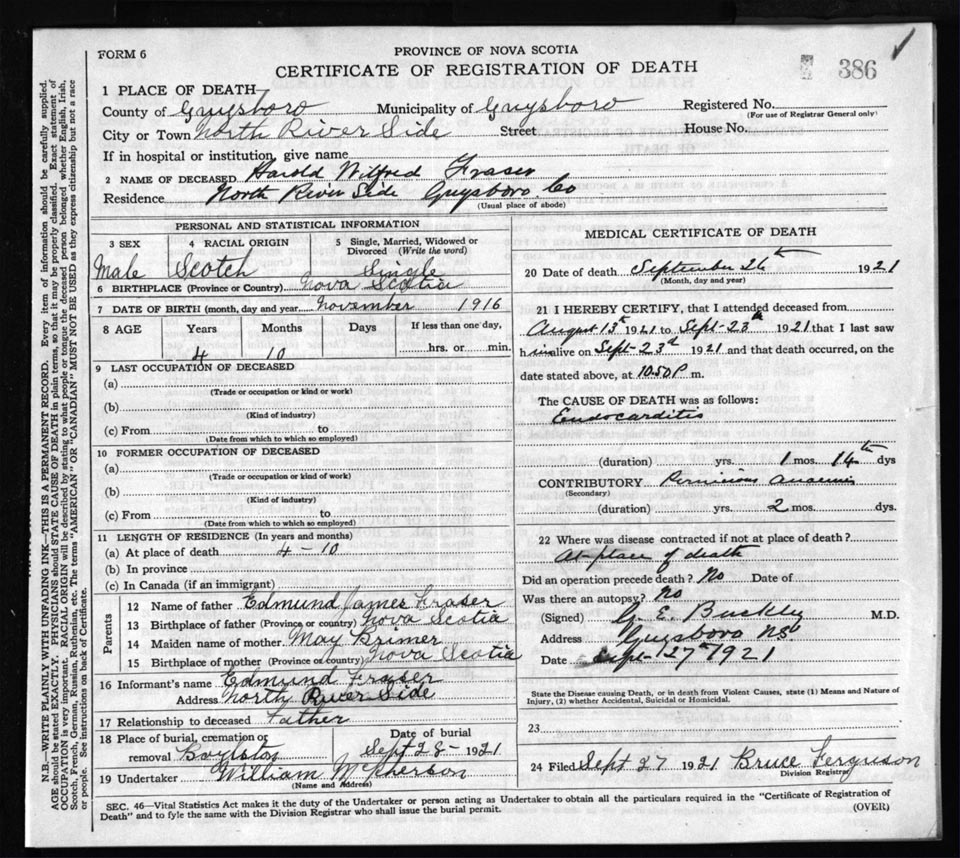 FORM 6
PROVINCE OF NOVA SCOTIA
CERTIFICATE OF REGISTRATION OF DEATH
386
1 PLACE OF DEATH
County of Guysboro Municipality of Guysboro Registered No.
(For use of Registrar General only)
City or Town North River Side Street House No.
If in hospital or institution, give name
2 NAME OF DECEASED Harold Wilfred Fraser
Residence North River Side Guysboro Co
(Usual place of abode)
PERSONAL AND STATISTICAL INFORMATION
3 SEX 4 RACIAL ORIGIN 5 Single, Married, Widowed or Divorced (Write the word)
Male Scotch Single
6 BIRTHPLACE (Province or Country) Nova Scotia
7 DATE OF BIRTH (month, day and year) November 1916
8 AGE Years Months Days If less than one day,
4 10 hrs. or min.
9 LAST OCCUPATION OF DECEASED
(a)
(Trade or occupation or kind of work)
(b)
(Kind of industry)
(c) From to
(Date from which to which so employed)
10 FORMER OCCUPATION OF DECEASED
(a)
(Trade or occupation or kind of work)
(b)
(Kind of industry)
(c) From to
(Date from which to which so employed)
11 LENGTH OF RESIDENCE (In years and months)
(a) At place of death 4 - 10
(b) In province
(c) In Canada (if an immigrant)
Parents
12 Name of father Edmund James Fraser
13 Birthplace of father (Province or country) Nova Scotia
14 Maiden name of mother May Brimer
15 Birthplace of mother (Province or country) Nova Scotia
16 Informant's name Edmund Fraser
Address North River Side
17 Relationship to deceased Father
18 Place of burial, cremation or removal Boylston Date of burial Sept 28 - 1921
19 Undertaker William McPherson
(Name and Address)
MEDICAL CERTIFICATE OF DEATH
20 Date of death September 26 1921
(Month, day and year)
21 I HEREBY CERTIFY, that I attended deceased from
August 13th 1921 to Sept - 23rd 1921 that I last saw
him alive on Sept - 23rd 1921 and that death occurred, on the
date stated above, at 10.50 P. m.
The CAUSE OF DEATH was as follows:
Endocarditis
(duration) yrs. 1 mos. 14th dys
CONTRIBUTORY Pernicious Anaemia
(Secondary)
(duration) yrs. 2 mos. dys.
22 Where was disease contracted if not at place of death?
At place of death
Did an operation precede death? No Date of
Was there an autopsy? No
(Signed) G. E. Buckley M.D.
Address Guysboro NS
Date Sept - 27th 1921
State the Disease causing Death, or in death from Violent Causes, state (1) Means and Nature of
Injury, (2) whether Accidental, Suicidal or Homicidal.
23
24 Filed Sept 27 1921 Bruce Ferguson
Division Registrar
SEC. 46—Vital Statistics Act makes it the duty of the Undertaker or person acting as Undertaker to obtain all the particulars required in the "Certificate of Registration of
Death" and to fyle the same with the Division Registrar who shall issue the burial permit. (OVER)
N.B.—WRITE PLAINLY WITH UNFADING INK—THIS IS A PERMANENT RECORD. Every item of information should be carefully supplied.
AGE should be stated EXACTLY. PHYSICIANS should STATE CAUSE OF DEATH in plain terms, so that it may be properly classified. Exact statement of
OCCUPATION is very important. RACIAL ORIGIN will be described by stating to what people or tongue the deceased person belonged whether English, Irish,
Scotch, French, German, Russian, Ruthenian, etc. The terms "AMERICAN" OR "CANADIAN" MUST NOT BE USED as they express citizenship but not a race
or people. See instructions on back of Certificate.